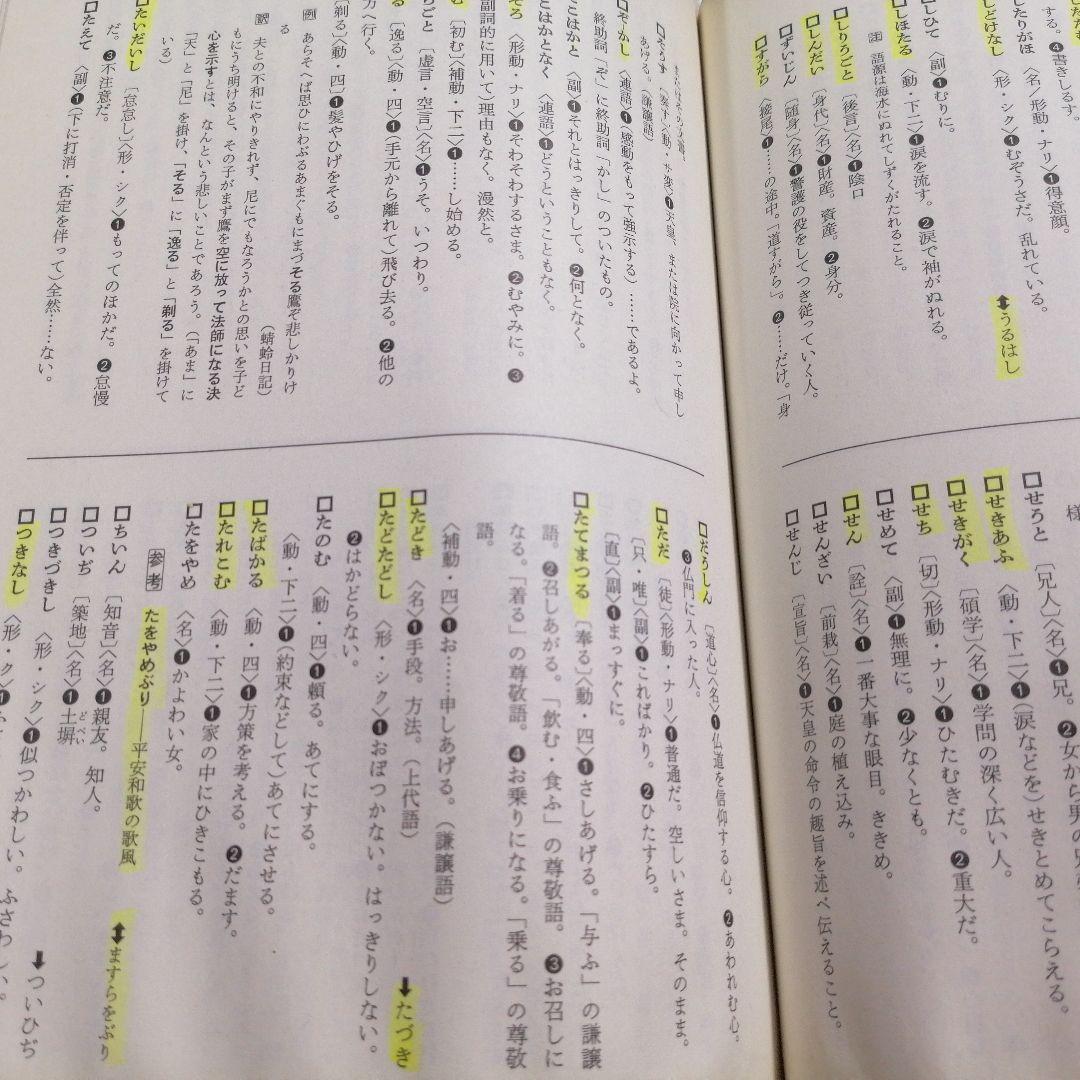 る。❹書きしるす。
したりがほ 〈名/形動・ナリ〉❶得意顔。
□しどけなし 〈形・シク〉❶むぞうさだ。乱れている。
⬍うるはし
□しひて 〈副〉❶むりに。
□しほたる 〈動・下二〉❶涙を流す。❷涙で袖がぬれる。
注 語源は海水にぬれてしずくがたれること。
□しりうごと 〔後言〕〈名〉❶陰口
□しんだい 〔身代〕〈名〉❶財産。資産。❷身分。
□ずいじん 〔随身〕〈名〉❶警護の役をしてつき従っていく人。
□すがら 〔接尾〕❶……の途中。「道すがら」。❷……だけ。「身
□せうと 〔兄人〕〈名〉❶兄。❷女から男の
様
□せきあふ 〈動・下二〉❶(涙などを)せきとめてこらえる。
□せきがく 〔碩学〕〈名〉❶学問の深く広い人。
□せち 〔切〕〈形動・ナリ〉❶ひたむきだ。❷重大だ。
□せめて 〈副〉❶無理に。❷少なくとも。
□せん 〔詮〕〈名〉❶一番大事な眼目。ききめ。
□せんざい 〔前栽〕〈名〉❶庭の植え込み。
□せんじ 〔宣旨〕〈名〉❶天皇の命令の趣旨を述べ伝えること。
□そうす 〔奏す〕〈動・サ変〉❶天皇、または院に向かって申し
あげる。(謙譲語)
□ぞかし 〈連語〉❶(感動をもって強示する)……であるよ。
終助詞「ぞ」に終助詞「かし」のついたもの。
そこはかと 〈副〉❶それとはっきりして。❷何となく。
とはかとなく 〈連語〉❶どうということもなく。
ぞろ 〈形動・ナリ〉❶そわそわするさま。❷むやみに。❸
副詞的に用いて)理由もなく。漫然と。
む 〔初む〕〈補動・下二〉❶……し始める。
らごと 〔虚言・空言〕〈名〉❶うそ。いつわり。
る 〔逸る〕〈動・四〉❶(手元から離れて)飛び去る。❷他の
方へ行く。
〔剃る〕〈動・四〉❶髪やひげをそる。
例 あらそへば思ひにわぶるあまぐもにまづそる鷹ぞ悲しかりけ
る
(蜻蛉日記)
訳 夫との不和にやりきれず、尼にでもなろうかとの思いを子ど
もにうち明けると、その子がまず鷹を空に放って法師になる決
心を示すとは、なんという悲しいことであろう。(「あま」に
「天」と「尼」を掛け、「そる」に「逸る」と「剃る」を掛けて
いる)
□たいだいし 〔怠怠し〕〈形・シク〉❶もってのほかだ。❷怠慢
だ。❸不注意だ。
□たえて 〈副〉❶(下に打消・否定を伴って)全然……ない。
□だうしん 〔道心〕〈名〉❶仏道を信仰する心。❷あわれむ心。
❸仏門に入った人。
□ただ 〔徒〕〈形動・ナリ〉❶普通だ。空しいさま。そのまま。
〔只・唯〕〈副〉❶こればかり。❷ひたすら。
〔直〕〈副〉❶まっすぐに。
□たてまつる 〔奉る〕〈動・四〉❶さしあげる。「与ふ」の謙譲
語。❷召しあがる。「飲む・食ふ」の尊敬語。❸お召しに
なる。「着る」の尊敬語。❹お乗りになる。「乗る」の尊敬
語。
〈補動・四〉❶お……申しあげる。(謙譲語)
□たどき 〈名〉❶手段。方法。(上代語) ⬇たづき
□たどたどし 〈形・シク〉❶おぼつかない。はっきりしない。
❷はかどらない。
□たのむ 〈動・四〉❶頼る。あてにする。
〈動・下二〉❶(約束などして)あてにさせる。
□たばかる 〈動・四〉❶方策を考える。❷だます。
□たれこむ 〈動・下二〉❶家の中にひきこもる。
□たをやめ 〈名〉❶かよわい女。
参考 たをやめぶり──平安和歌の歌風 ⬍ますらをぶり
□ちいん 〔知音〕〈名〉❶親友。知人。
□ついぢ 〔築地〕〈名〉❶土塀 どべい ⬇ついひぢ
□つきづきし 〈形・シク〉❶似つかわしい。ふさわしい。
□つきなし 〈形・ク〉❶